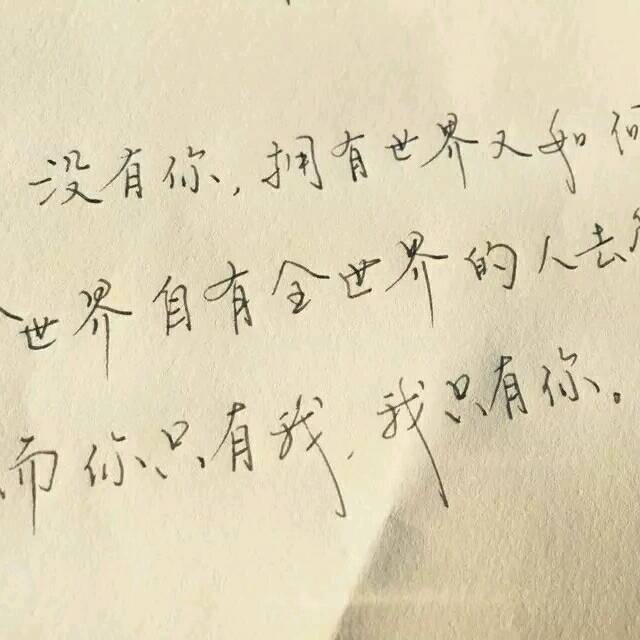 没有你，拥有世界又和何
全世界自有全世界的人去
而你只有我，我只有你。